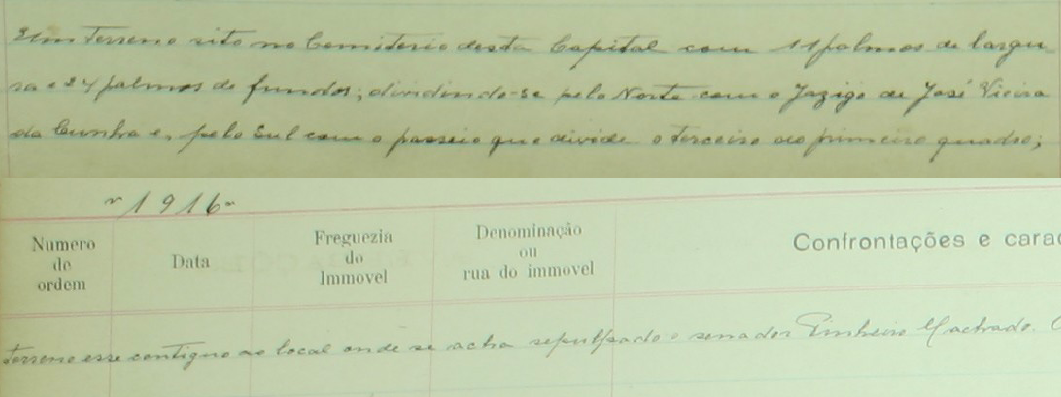 Um terreno sito no Cemiterio desta Capital com 11 palmos de largu
ra e 24 palmos de fundos; dividindo-se pelo Norte com o Jazigo de José Vieira
da Cunha e, pelo Sul com o passeio que divide o terceiro do primeiro quadro;
1916
Numero de ordem
Data
Freguezia do Immovel
Denominação ou rua do immovel
Confrontações e carac
terreno esse contiguo ao local onde se acha sepultado o senador Pinheiro Machado.